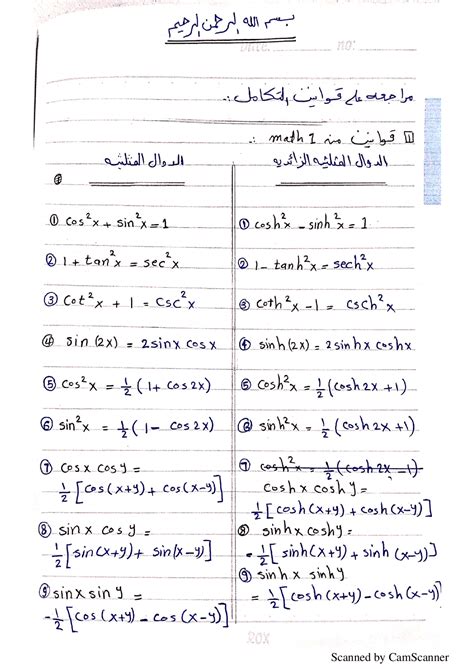 بسم الله الرحمن الرحيم
Date: no:
مراجعه على قوانين التكامل :.
1 قوانين من math 1 :.
الدوال المثلثيه
① cos²x + sin²x = 1
② 1 + tan²x = sec²x
③ cot²x + 1 = csc²x
④ sin (2x) = 2 sinx cosx
⑤ cos²x = 1/2 (1 + cos 2x)
⑥ sin²x = 1/2 (1 - cos 2x)
⑦ cosx cosy =
1/2 [cos (x+y) + cos (x-y)]
⑧ sinx cosy =
1/2 [sin (x+y) + sin (x-y)]
⑨ sinx siny =
-1/2 [cos (x+y) - cos (x-y)]
الدوال المثلثيه الزائديه
① cosh²x - sinh²x = 1
② 1 - tanh²x = sech²x
③ coth²x - 1 = csch²x
④ sinh (2x) = 2 sinhx coshx
⑤ cosh²x = 1/2 (cosh 2x + 1)
⑥ sinh²x = 1/2 (cosh 2x + 1)
⑦ cosh²x = 1/2 (cosh 2x - 1)
coshx coshy =
1/2 [cosh (x+y) + cosh (x-y)]
⑧ sinhx coshy =
= 1/2 [sinh (x+y) + sinh (x-y)]
⑨ sinhx sinhy
= 1/2 [cosh (x+y) - cosh (x-y)]
Scanned by CamScanner